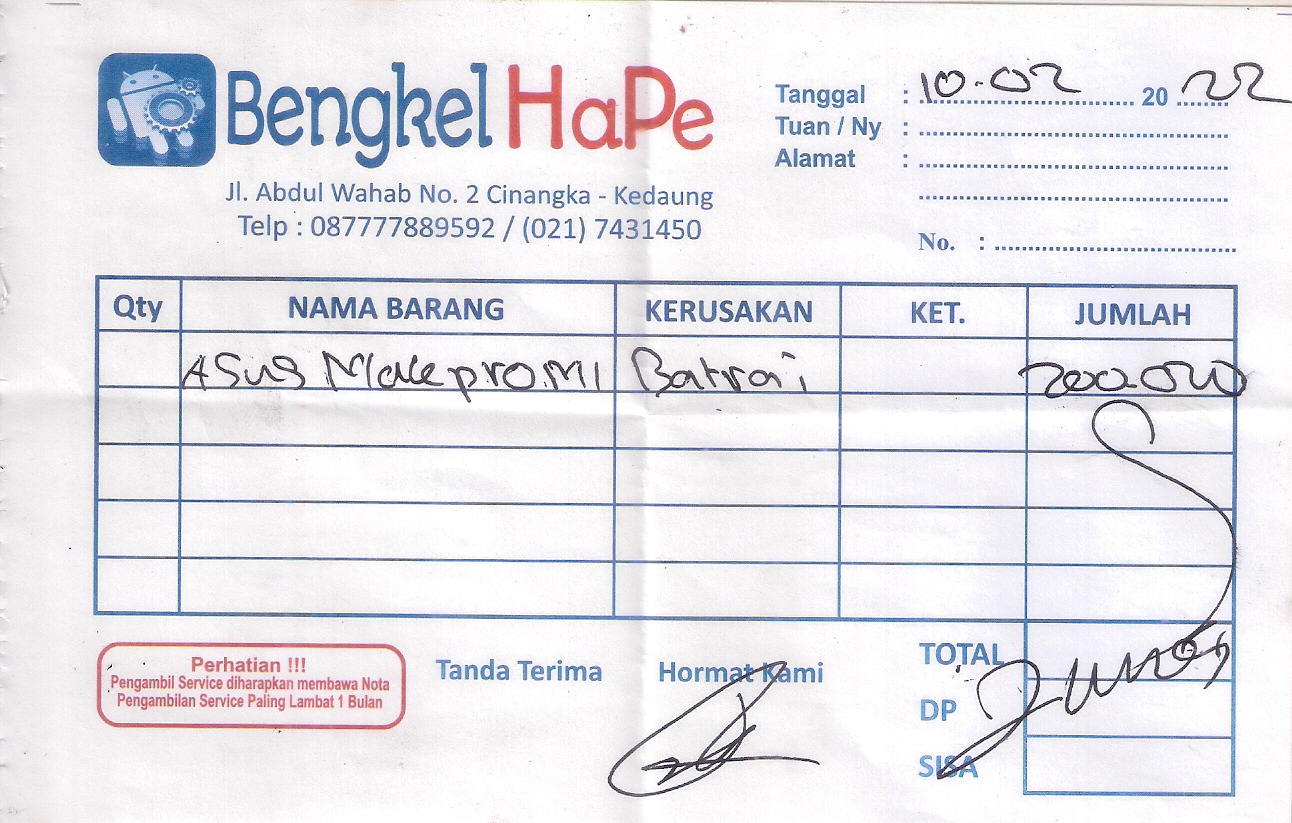 Bengkel HaPe
Jl. Abdul Wahab No. 2 Cinangka - Kedaung
Telp : 087777889592 / (021) 7431450
Tanggal : 10-02 20 22
Tuan / Ny :
Alamat :
No. :
Qty NAMA BARANG KERUSAKAN KET. JUMLAH
Asus Makepro M1 Batrai 200.000
Perhatian !!!
Pengambil Service diharapkan membawa Nota
Pengambilan Service Paling Lambat 1 Bulan
Tanda Terima
Hormat Kami
TOTAL
DP
SISA
Lunas